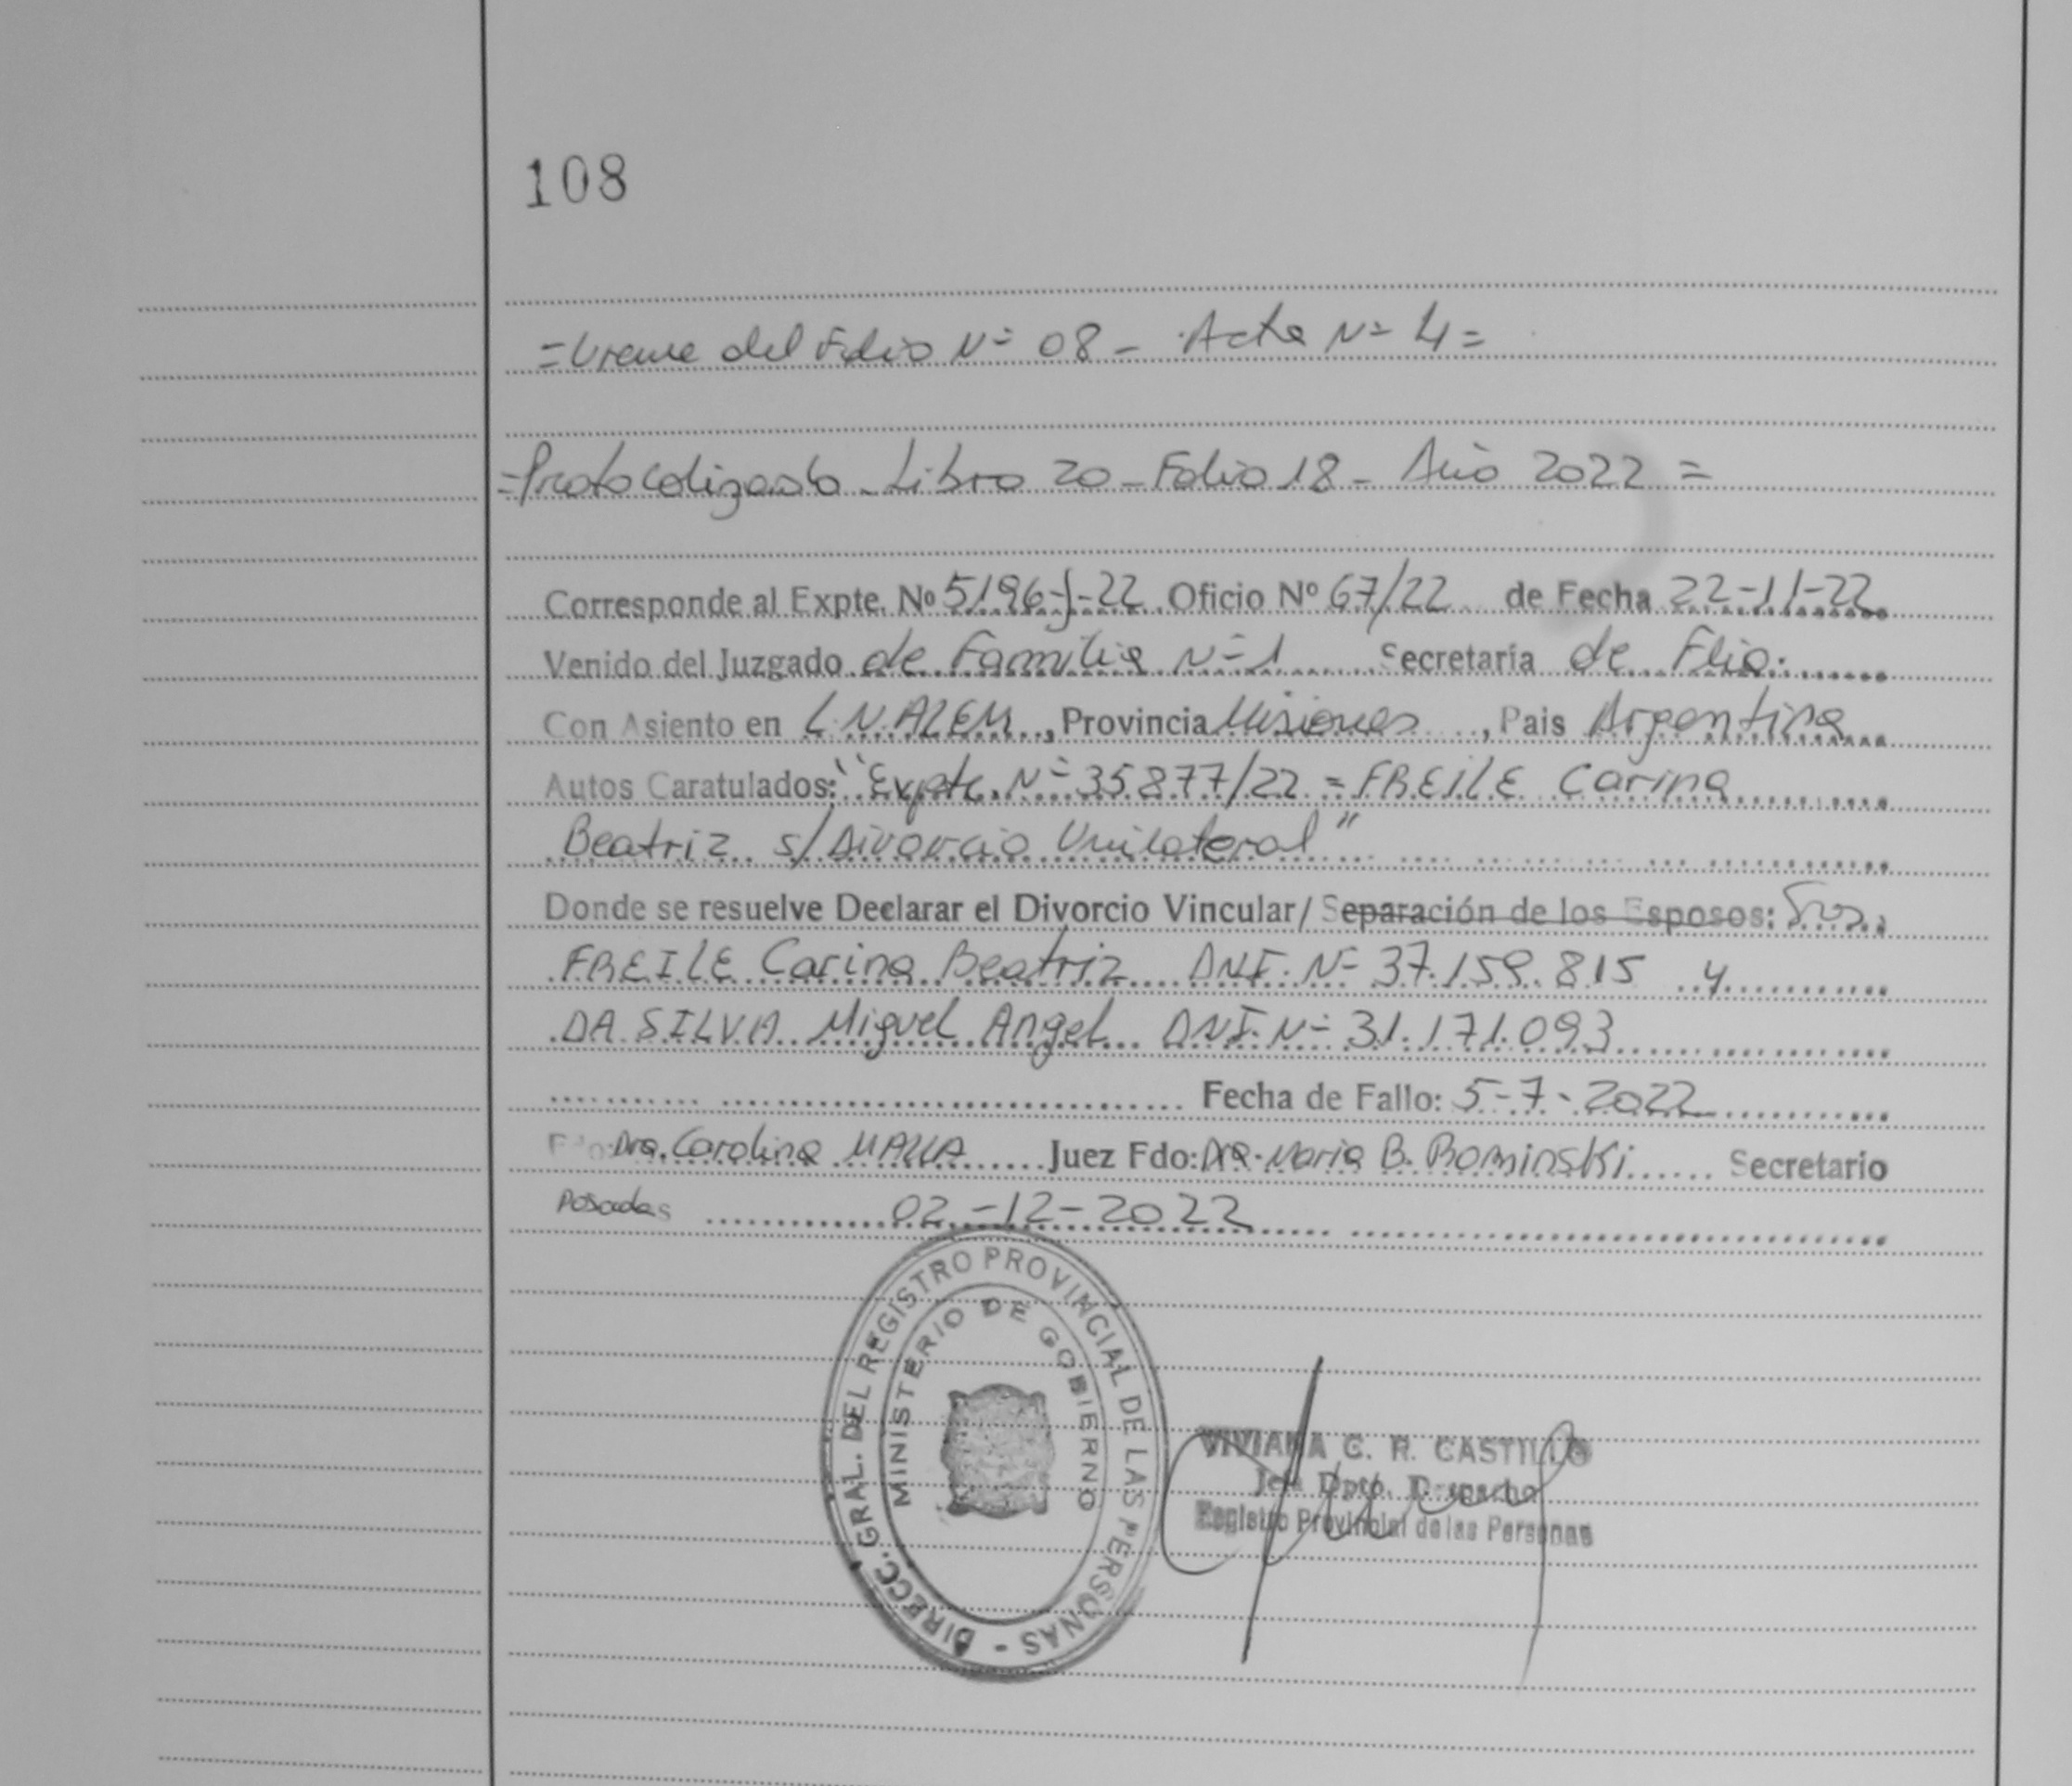 108
=Viene del Folio Nº 08 - Acta Nº 4=
=Protocolizado - Libro 20 - Folio 18 - Año 2022=
Corresponde al Expte. Nº 5196-J-22 Oficio Nº 67/22 de Fecha 22-11-22
Venido del Juzgado de Familia Nº 1 Secretaría de Flia.
Con Asiento en L.N.ALEM, Provincia Misiones, Pais Argentina
Autos Caratulados: "Expte. Nº 35877/22 = FREILE Carina
Beatriz s/Divorcio Unilateral"
Donde se resuelve Declarar el Divorcio Vincular/ Separación de los Esposos: Sres.
FREILE Carina Beatriz DNI. Nº 37.159.815 y
DA SILVA Miguel Angel DNI. Nº 31.171.093
Fecha de Fallo: 5-7-2022
Fdo: Dra. Carolina Juez Fdo: Dra. Maria B. Bominski Secretario
Posadas 02-12-2022
DIRECC. GRAL. DEL REGISTRO PROVINCIAL DE LAS PERSONAS -
MINISTERIO DE GOBIERNO
VIVIANA C. R. CASTILLO
Jefa Dpto. Despacho
Registro Provincial de las Personas